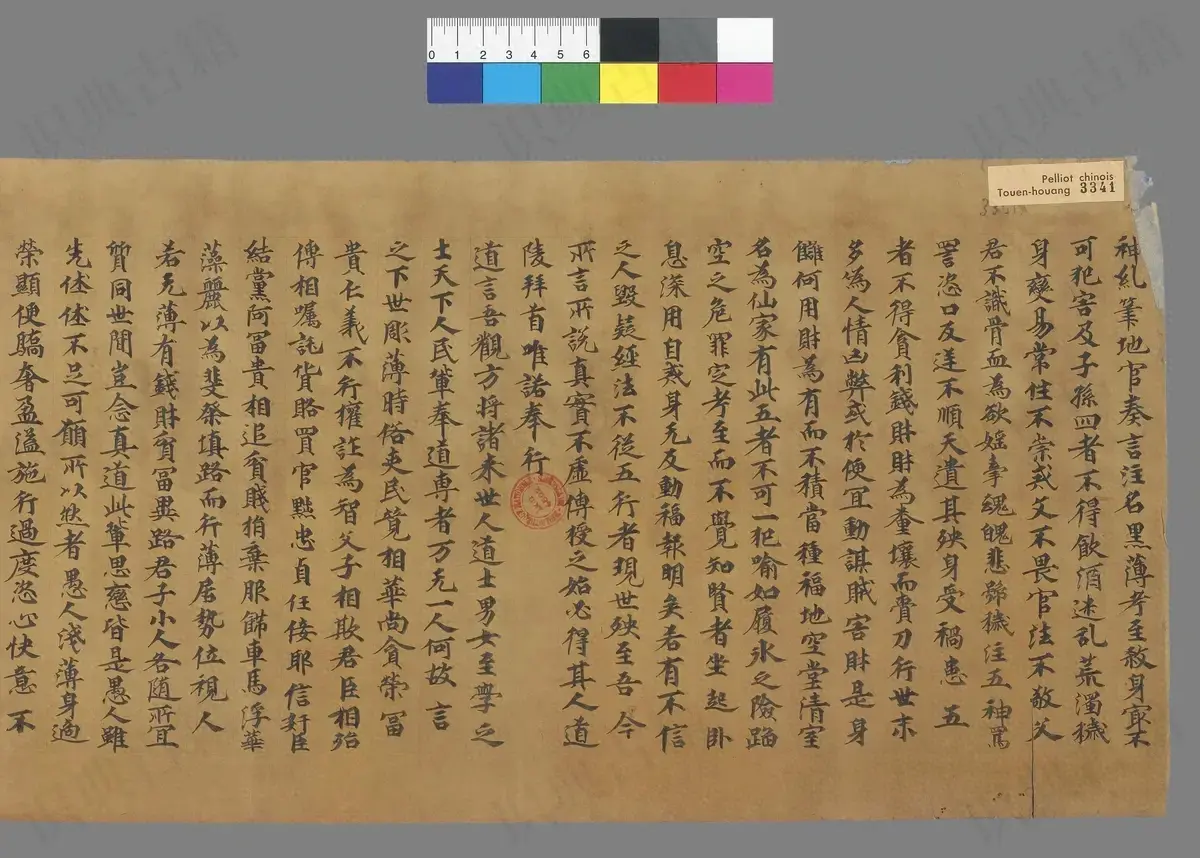 0 1 2 3 4 5 6
Pelliot chinois
Touen-houang 3341
神糺筆地官奏言注名黑薄考至煞身寔不
可犯害及子孫四者不得飲酒迷乱荒濁穢
身變易常性不崇戒父不畏官法不敬父
君不識骨血為欲婬拳魂魄悲號穢注五神罵
詈恣口反逆不順天遺其殃身受禍患五
者不得貪利錢財財為糞壤而賣刀行世末
多為人情凶弊或於便宜動謀賊害財是身
讎何用財為有而不積當種福地空堂清室
名為仙家有此五者不可一犯喻如履氷之險蹈
空之危罪定考至而不覺知賢者坐起卧
息深用自戒身无反動福報明矣若有不信
之人毀疑經法不從五行者現世殃至吾今
所言所說真實不虛傳授之始必得其人道
陵拜首唯諾奉行
道言吾觀方將諸末世人道士男女至學之
士天下人民輩奉道専者万无一人何故言
之下世彫薄時俗夫民競相華尚貪榮冨
貴仁義不行權詐為智父子相欺君臣相殆
傳相囑託貨賂買官黜忠貞任倿耶信奸臣
結黨阿冨貴相追貧賤捐棄服餝車馬浮華
藻麗以為斐粲填路而行薄居勢位視人
若无薄有錢財貧冨異路君子小人各随所宜
質同世間豈念真道此輩思應皆是愚人雖
先述述不足可願所以然者愚人淺薄身適
榮顯便驕奢盈溢施行過度恣心快意不